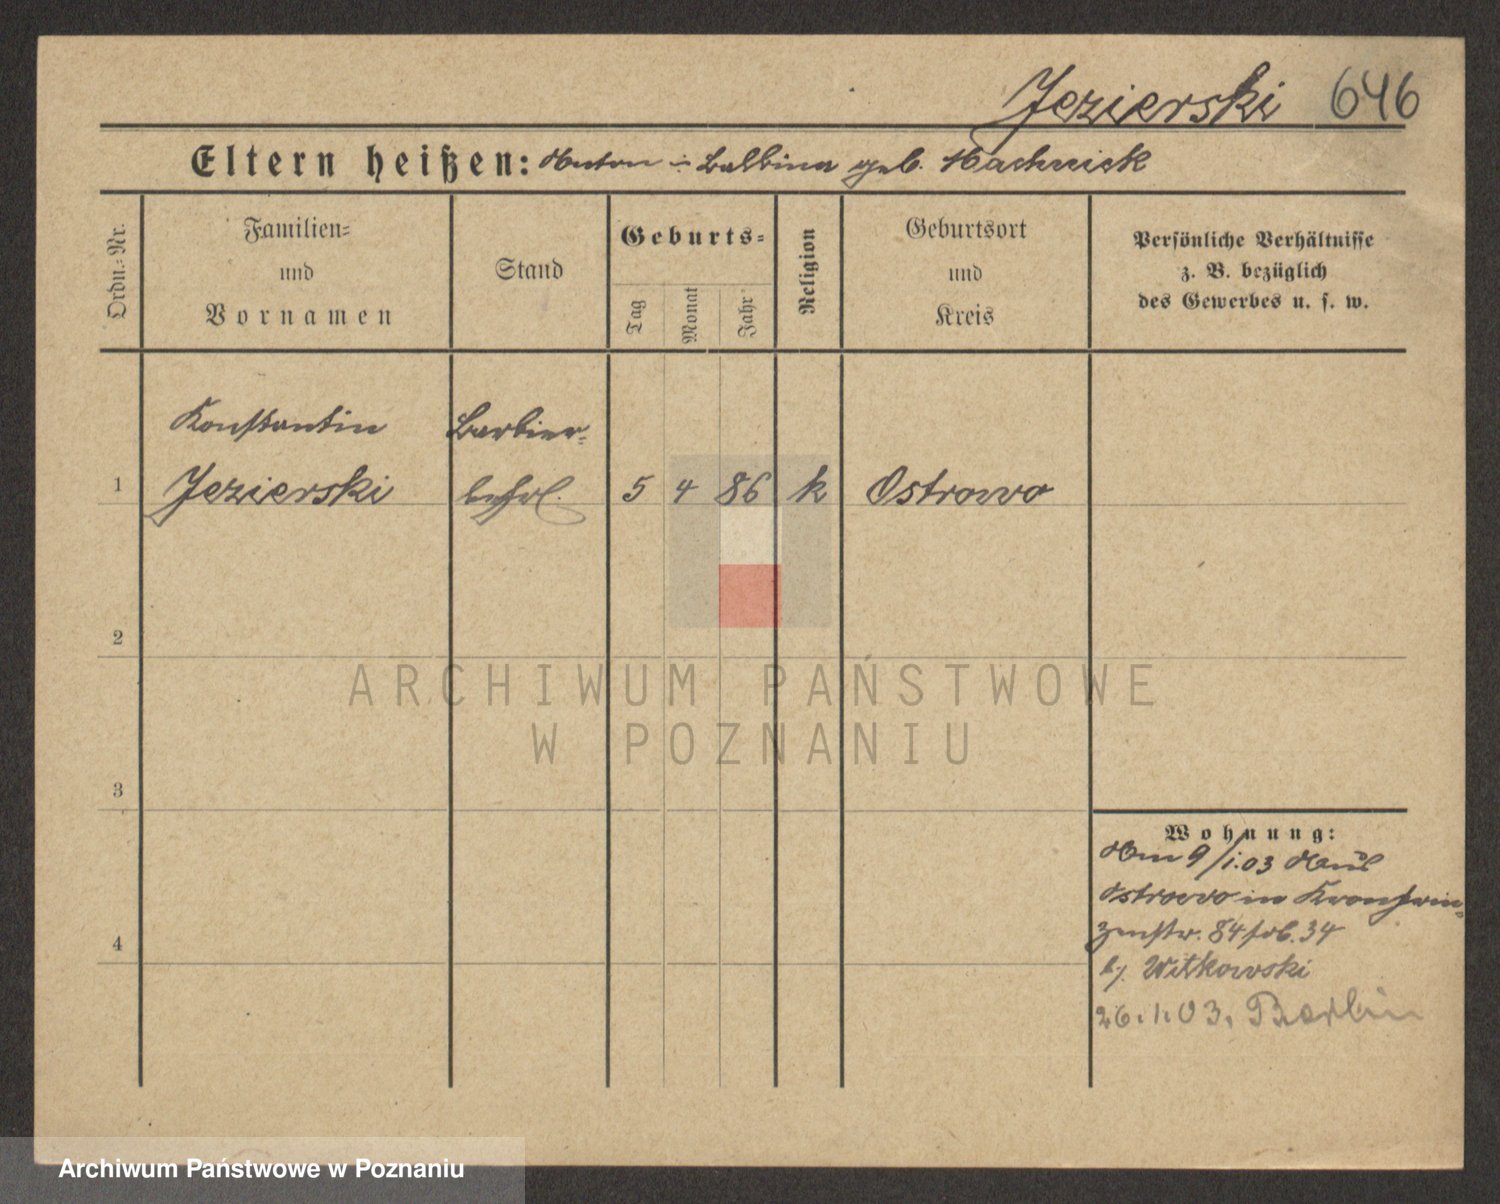 Jezierski 646
Eltern heißen: Anton u. Balbina geb.
Ordn.-Nr.
Familien-
und
Vornamen
Stand
Geburts-
Tag
Monat
Jahr
Religion
Geburtsort
und
Kreis
Persönliche Verhältnisse
z. B. bezüglich
des Gewerbes u. s. w.
Konstantin Barbier-
1 Jezierski 5 4 86 k Ostrowo
2
ARCHIWUM PAŃSTWOWE
W POZNANIU
3
Wohnung:
Am 9/1.03 Aus
Ostrowo in Kronprin-
zenstr. 84
b/. Witkowski
26.1.03. Berlin
4
Archiwum Państwowe w Poznaniu